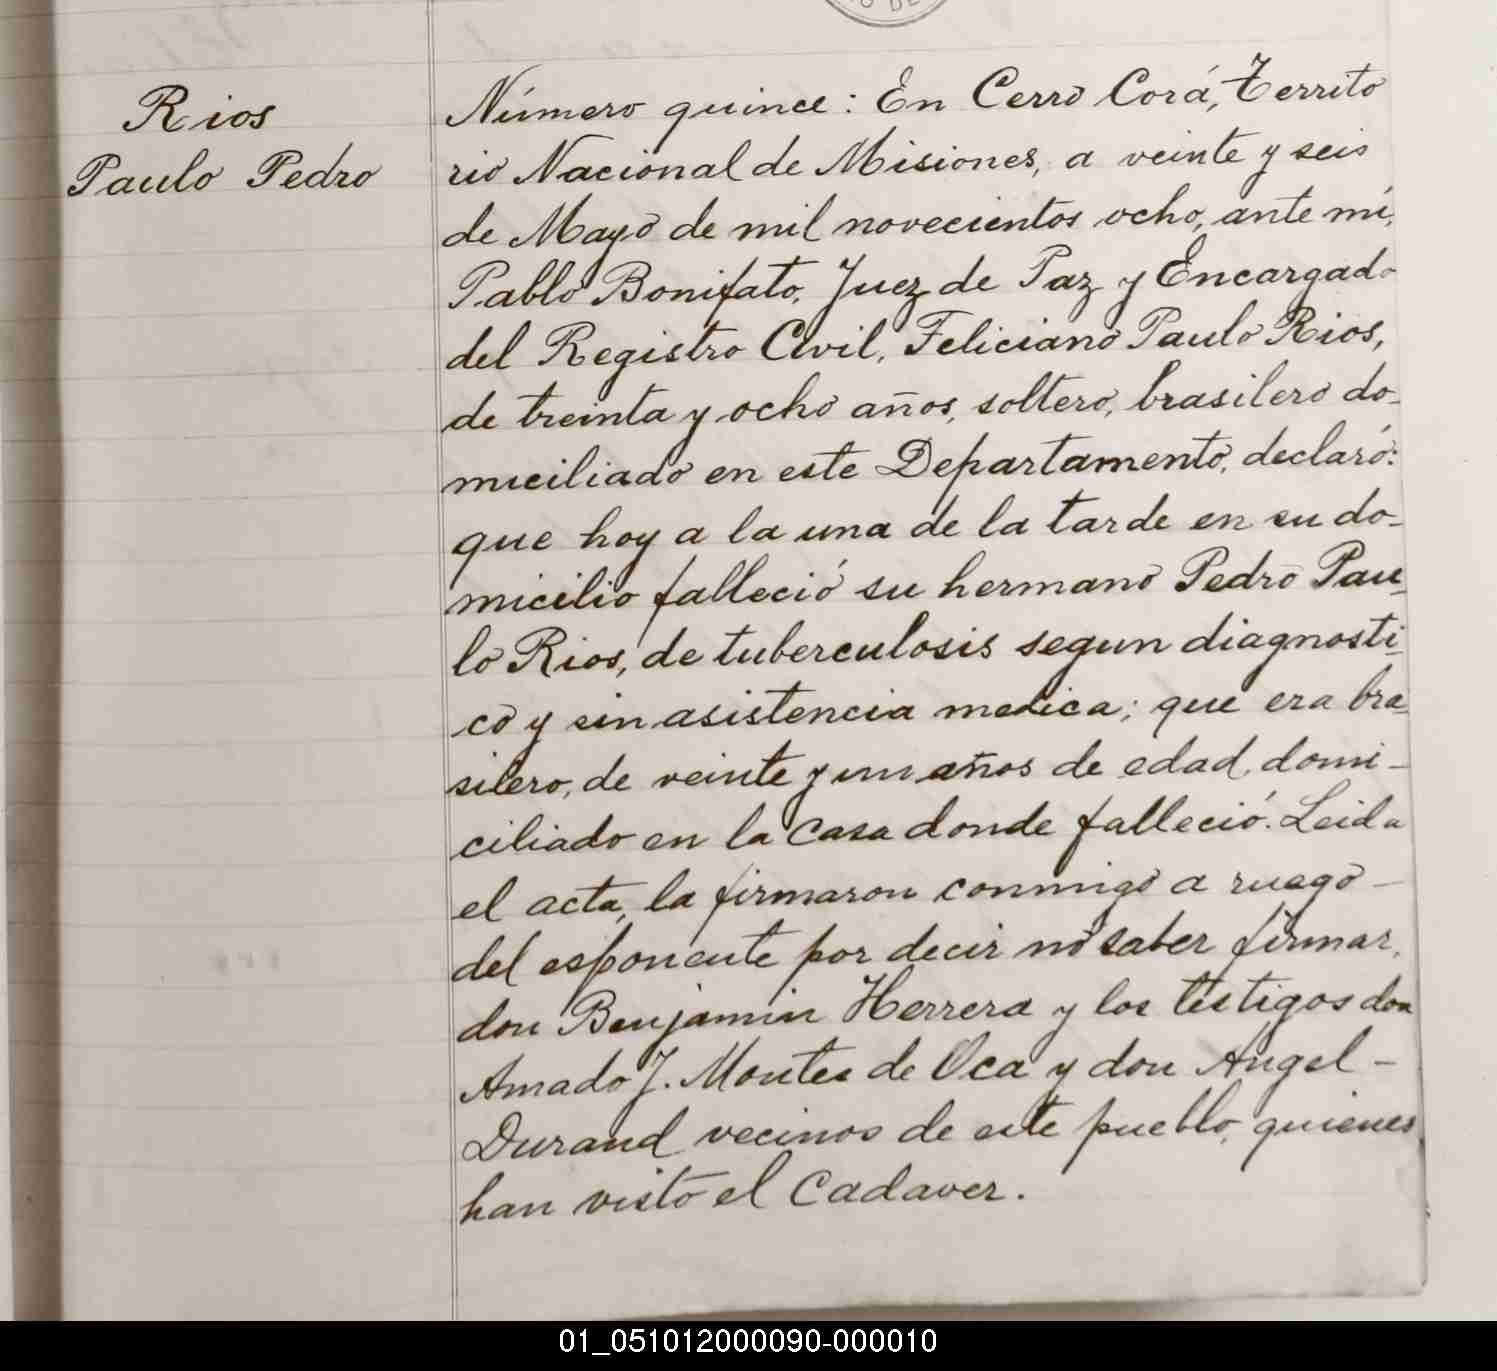 Rios
Paulo Pedro
Número quince: En Cerro Corá, Territo
rio Nacional de Misiones, a veinte y seis
de Mayo de mil novecientos ocho, ante mí,
Pablo Bonifato, Juez de Paz y Encargado
del Registro Civil, Feliciano Paulo Rios,
de treinta y ocho años, soltero, brasilero do-
miciliado en este Departamento, declaró:
que hoy a la una de la tarde en su do-
micilio falleció su hermano Pedro Pau-
lo Rios, de tuberculosis segun diagnosti-
co y sin asistencia medica; que era bra-
silero, de veinte y un años de edad, domi-
ciliado en la casa donde falleció. Leida
el acta, la firmaron conmigo a ruego -
del esponente por decir no saber firmar,
don Benjamin Herrera y los testigos don
Amado J. Montes de Oca y don Angel -
Durand vecinos de este pueblo, quienes
han visto el Cadaver.
01_051012000090-000010